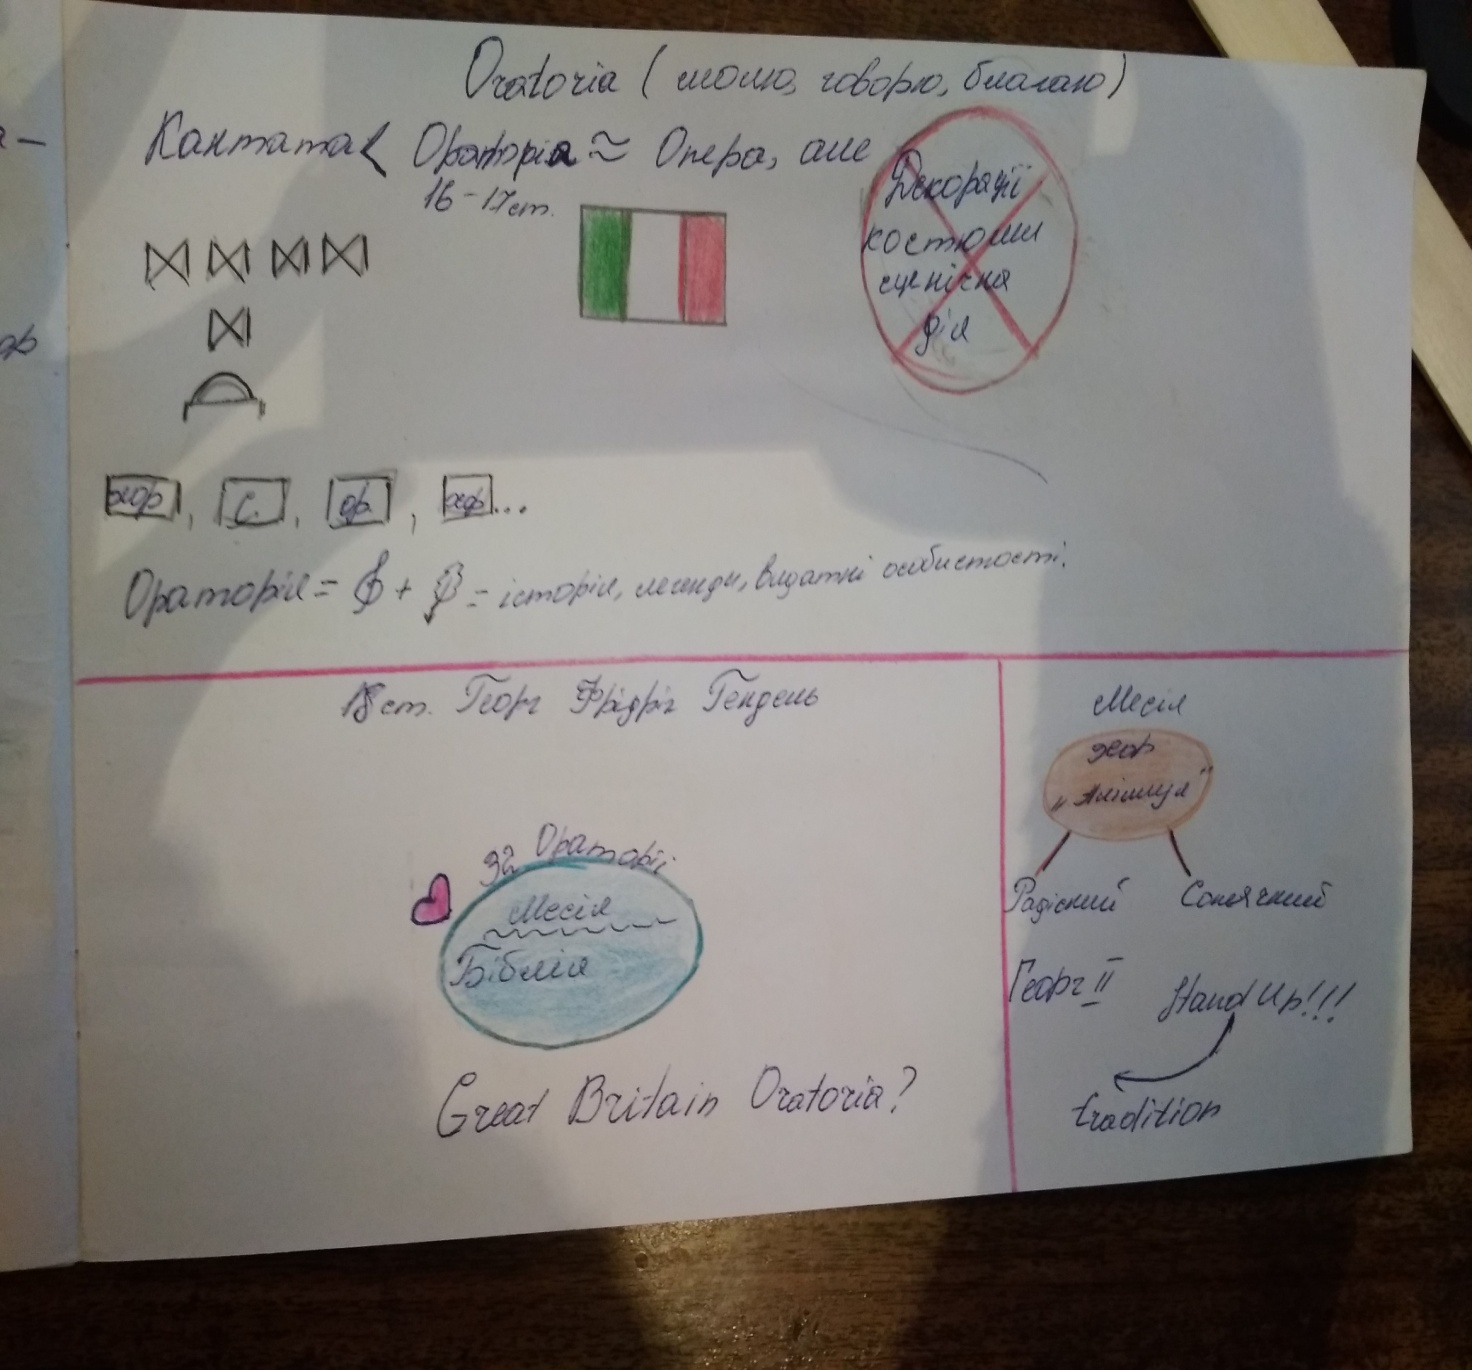 Oratoria ( молю, говорю, благаю)
Кантата < Ораторія ≈ Опера, але
16-17ст.
Декорації
костюми
сценічна
дія
хор, С., ор, хор...
Ораторія = + = історія, легенди, видатні особистості.
18ст. Георг Фрідріх Гендель
32 Ораторії
Месія
Біблія
Great Britain Oratoria?
Месія
хор
„Алілуя"
Радісний Сонячний
Георг II Stand Up!!!
tradition